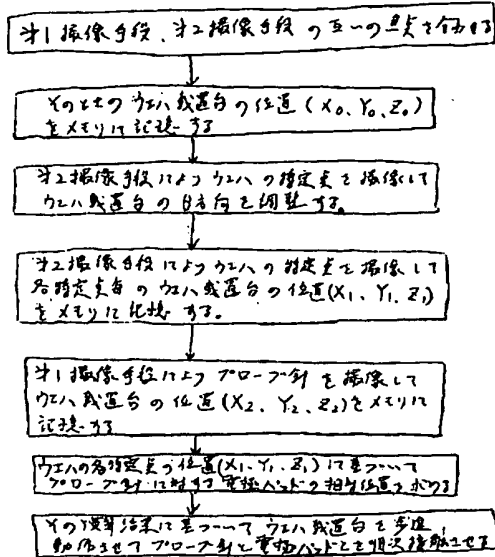 第1撮像手段、第2撮像手段の互いの焦点を合せる
そのときのウエハ載置台の位置(X0、Y0、Z0)
をメモリに記憶する
第2撮像手段によりウエハの特定点を撮像して
ウエハ載置台のθ方向を調整する。
第2撮像手段によりウエハの特定点を撮像して
各特定点毎のウエハ載置台の位置(X1、Y1、Z1)
をメモリに記憶する。
第1撮像手段によりプローブ針を撮像して
ウエハ載置台の位置(X2、Y2、Z2)をメモリに
記憶する
ウエハの各特定点の位置(X1、Y1、Z1)に基づいて
プローブ針に対する電極パッドの相対位置を求める
その演算結果に基づいてウエハ載置台を
動作させてプローブ針と電極パッドとを順次接触させる